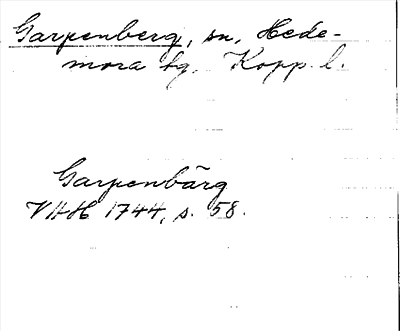 Garpenberg, sn, Hede-
mora tg. Kopp. l.
Garpenbärg
VHH 1744, s. 58.